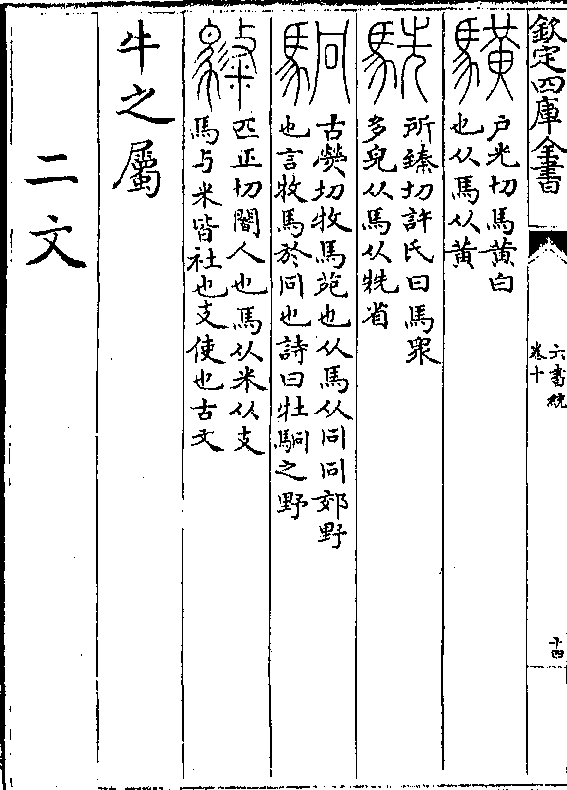 欽定四庫全書
六書統
卷十
十四
户光切馬黄白
也从馬从黄
駪
所臻切許氏曰馬衆
多皃从馬从兟省
駉
古熒切牧馬苑也从馬从冋冋郊野
也言牧馬於冋也詩曰牡駉之野
匹正切閽人也馬从米从支
馬与米皆社也支使也古文
牛之屬
二文